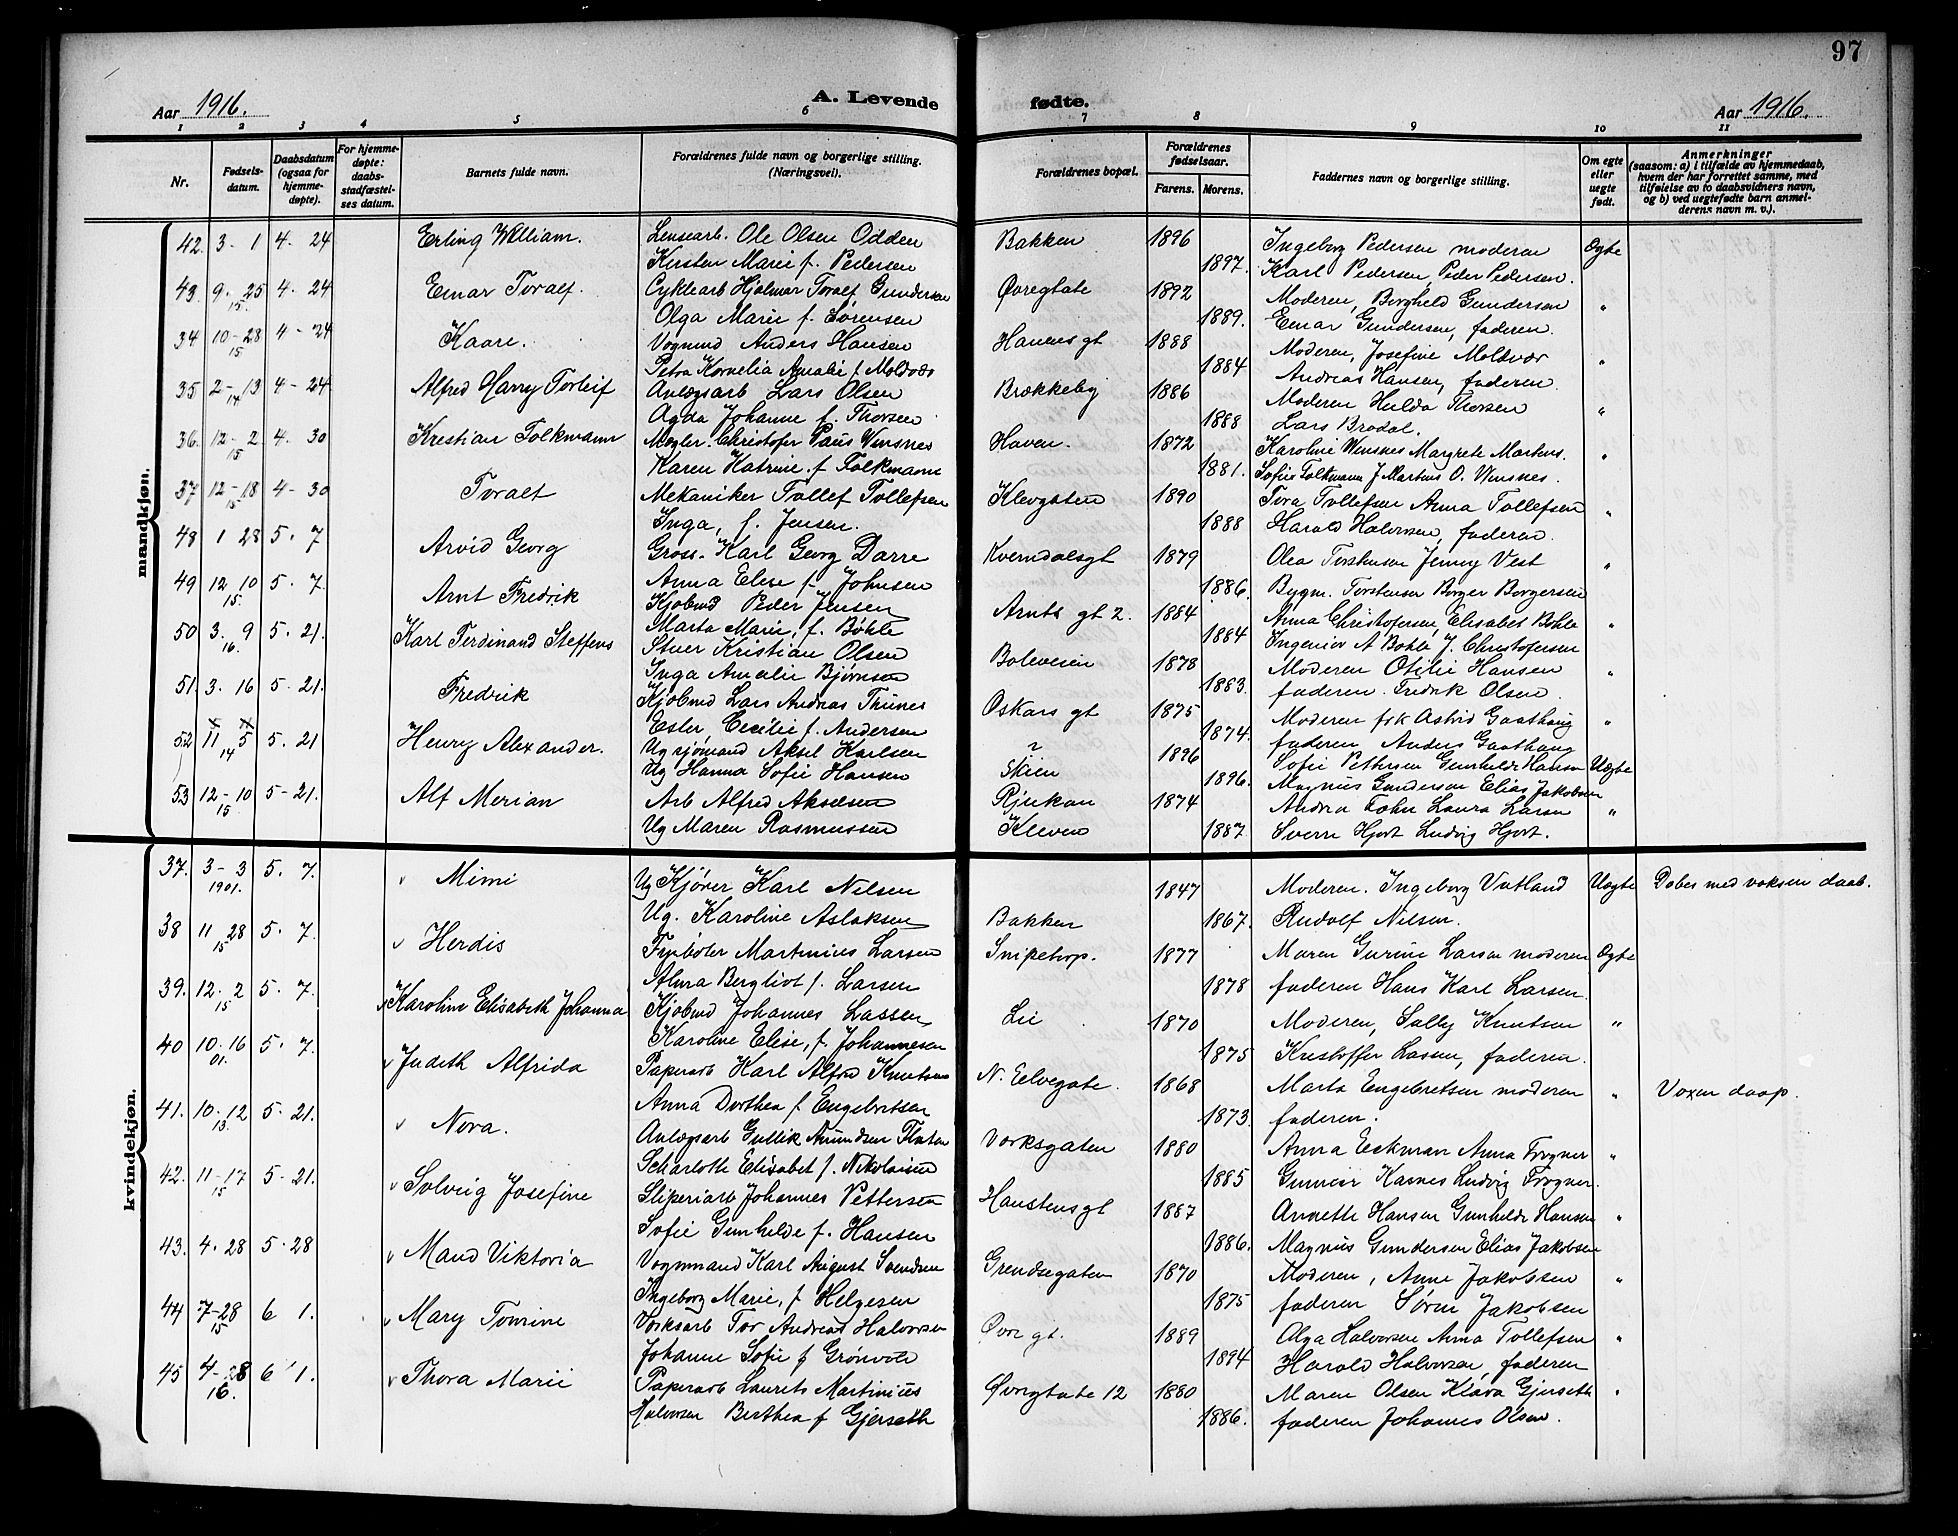 97
Aar 1916. A. Levende fødte. Aar 1916.
1 2 3 4 5 6 7 8 9 10 11
Nr.
Fødsels-
datum.
Daabsdatum
(ogsaa for
hjemme-
døpte).
For hjemme-
døpte:
daabs-
stadfæstel-
ses datum.
Barnets fulde navn.
Forældrenes fulde navn og borgerlige stilling.
(Næringsvei).
Forældrenes bopæl.
Forældrenes
fødselsaar.
Farens. Morens.
Faddernes navn og borgerlige stilling.
Om egte
eller
uegte
født.
Anmerkninger
(saasom: a) i tilfælde av hjemmedaab,
hvem der har forrettet samme, med
tilføielse av to daabsvidners navn,
og b) ved uegtefødte barn anmel-
derens navn m. v.).
mandkjøn.
42. 3. 1 4. 24 Erling William. Lensearb. Ole Olsen Odden Bakken 1896 Ingeborg Pedersen moderen Egte
Kirsten Marie f. Pedersen 1897. Karl Pedersen, Peder Pedersen.
43. 9. 25 15. 4. 24 Einar Toralf. Cyklearb Hjalmar Toralf Gundersen Øvregtate 1892 Moderen, Borghild Gundersen "
Olga Marie f. Sørensen 1889. Einar Gundersen, faderen.
34 10-28 15 4-24 Kaare. Vognmd Anders Hansen Hanens gt 1888 Moderen, Josefine Moldvær "
Petra Kornelia Amalie f Moldvær 1884 Andreas Hansen, faderen.
35 2-13 14 4-24 Alfred Harry Torleif Anlægsarb Lars Olsen Brækkeby 1886 Moderen Hulda Thorsen "
Agda Johanne f. Thorsen 1888 Lars Brodal.
36. 12-2 15 4. 30 Kristian Folkmann Mægler. Christofer Paus Winsnes Haven. 1872 Karoline Winsnes Margrete Martens. "
Karen Katrine. f Folkmann 1881. Sofie Folkmann J Martens O. Winsnes.
37 12-18 15 4-30 Toralf Mekaniker Tollef Tollefsen Klevgaten 1890 Tora Tollefsen Anna Tollefsen "
Inga, f. Jensen. 1888 Harald Halvorsen, faderen.
48 1 28 5. 7 Arvid Georg Gross. Karl Georg Darre Kverndalsgt 1879 Olea Torstensen Jenny Vest "
Anna Elise f. Johnsen 1886. Bygm. Torstensen Borger Borgersen
49 12 10 15. 5. 7 Arnt Fredrik Kjøbmd Peder Jensen Arnts gt 2. 1884 Anna Christofersen, Elisabet Bøhle "
Marta Marie, f. Bøhle 1884 Ingeniør A Bøhle J. Christofersen
50 3. 9 16. 5. 21. Karl Ferdinand Steffens Stuer Kristian Olsen Bølevein 1878 Moderen Otilie Hansen "
Inga Amalie Bjørnsen 1883. faderen. Fredrik Olsen.
51 3. 16 5. 21. Fredrik Kjøbmd Lars Andreas Thunes Oskars gt 1875 Moderen frk Astrid Gaathaug "
Ester, Cecilie f. Andersen 1874. faderen Anders Gaathaug
52 11 5 14 5. 21 Henry Alexander. Ug sjømand Aksel Karlsen ? 1896 Sofie Pettersen Gunhilde Hansen Uegte
Ug Hanna Sofie Hansen Skien 1896. Magnus Gundersen Elias Jakobsen
53 12-10 15. 5-21. Alf Merian Arb Alfred Akselsen Rjukan 1874 Andrea Foehn Laura Larsen "
Ug Maren Rasmussen Kleven 1887. Sverre Hjort Ludvig Hjort.
kvindekjøn.
37. 3-3 1901. 5. 7. v Mimi Ug Kjører Karl Nilsen 1847 Moderen. Ingeborg Vatland Uegte Døbes med voksen daab.
Ug. Karoline Aslaksen Bakken 1867. Rudolf Nilsen.
38 11 28 15 5. 7. v Herdis Fyrbøter Martinius Larsen Snipetorp. 1877 Maren Gurine Larsen moderen Egte
Alma Bergliot f. Larsen 1878 faderen Hans Karl Larsen.
39. 12. 2 15 5. 7. v Karoline Elisabeth Johanna Kjøbmd Johannes Lassen Lie 1870 Moderen, Sally Knutsen "
Karoline Elise, f. Johannesen 1875 Kristoffer Lassen, faderen.
40 10. 16 01. 5. 7. v Judith Alfrida Papirarb Karl Alfred Knutsen N. Elvegate. 1868 Marta Engebretsen moderen " Voxen daap.
Anna Dorthea f Engebretsen 1873. faderen.
41. 10. 12 13. 5. 21. v Nora. Anlægsarb Gullik Amundsen Flaten Værksgaten 1880 Anna Eckman Anna Frogner "
Scharlotte Elisabet f. Nikolaisen 1885 Gunnar Karnes Ludvig Frogner.
42. 11-17 15 5-21. v Solveig Josefine Sliperiarb Johannes Pettersen Hanstensgt 1887 Annette Hansen Gunhilde Hansen "
Sofie Gunhilde f. Hansen 1886. Magnus Gundersen Elias Jakobsen
43. 4. 28 5-28 v Maud Viktoria Vognmand Karl August Svendsen Grendsegaten 1870 Moderen, Anne Jakobsen "
Ingeborg Marie, f Helgesen 1875 faderen Søren Jakobsen
44 7-28 15 6 1. v Mary Tomine Værksarb Tor Andreas Halvorsen Øvre gt. 1889 Olga Halvorsen Anna Tollefsen "
Johanne Sofie f Grønvold 1894 Harald Halvorsen, faderen
45 4-28 16. 6 1. v Thora Marie Papirarb Laurits Martinius Øvregtate 12 1880 Maren Olsen Klara Gjerseth "
Halvorsen Berthea f Gjerseth 1886. faderen Johannes Olsen.